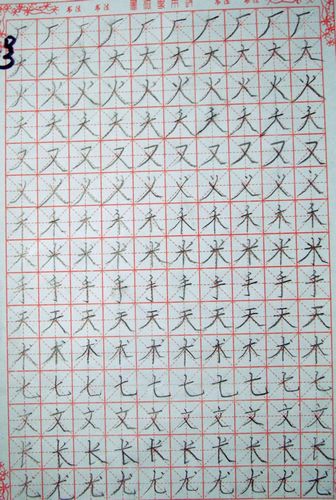 书法 书法 书法 书法
厂厂厂厂厂厂厂厂厂
大大大大大大大大大
火火火火火火火火火
夫夫夫夫夫夫夫夫夫
又又又又又又又又又
义义义义义义义义义
禾禾禾禾禾禾禾禾禾
米米米米米米米米米
手手手手手手手手手
天天天天天天天天天
术术术术术术术术术
七七七七七七七七七
文文文文文文文文文
长长长长长长长长长
尤尤尤尤尤尤尤尤尤